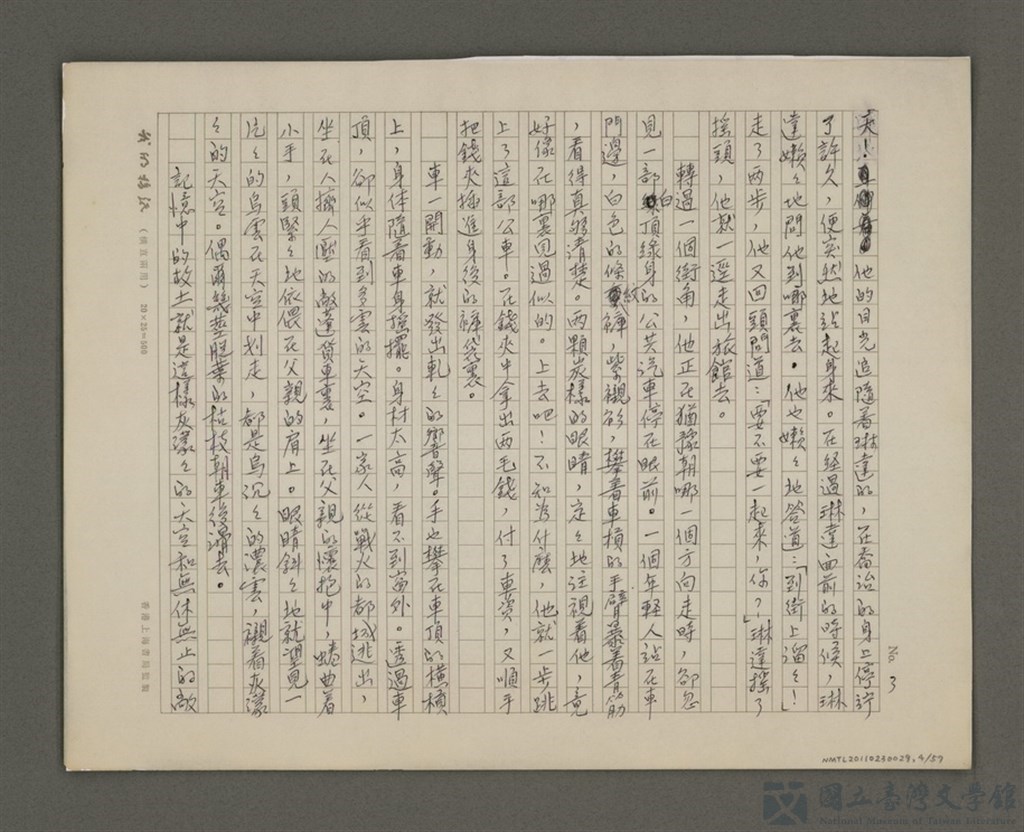 他的目光追隨着琳達的,在喬治的身上停佇
了許久,便突然地站起身來。在經過琳達面前的時候,琳
達懶々地問他到哪裏去。他也懶々地答道:「到街上溜々!」
走了兩步,他又回頭問道:「要不要一起來,你?」琳達搖了
搖頭,他就一逕走出旅館去。
轉過一個街角,他正在猶豫朝哪一個方向走時,卻忽
見一部白頂綠身的公共汽車停在眼前。一個年輕人站在車
門邊,白色的條紋褲,紫襯衫,攀着車槓的手臂暴着青筋
,看得真夠清楚。兩顆炭樣的眼睛,定々地注視着他,竟
好像在哪裏見過似的。上去吧!不知為什麼,他就一步跳
上了這部公車。在錢夾中拿出兩毛錢,付了車資,又順手
把錢夾插進身後的褲袋裏。
車一開動,就發出軋々的響聲。手也攀在車頂的橫槓
上,身體隨着車身搖擺。身材太高,看不到窗外。透過車
頂,卻似乎看到多雲的天空。一家人從戰火的都城逃出,
坐在人擠人壓的敞蓬貨車裏,坐在父親的懷抱中,蜷曲着
小手,頭緊々地依偎在父親的肩上。眼睛斜々地就望見一
片々的烏雲在天空中划走,都是烏沉々的濃雲,襯着灰濛
々的天空。偶爾幾莖脫葉的枯枝朝車後滑去。
記憶中的故土就是這樣灰濛々的天空和無休無止的敞
No. 3
(橫直兩用) 20×25=500
香港上海書局監製
NMTL20110230029, 4/57
國立臺灣文學館
National Museum of Taiwan Literature